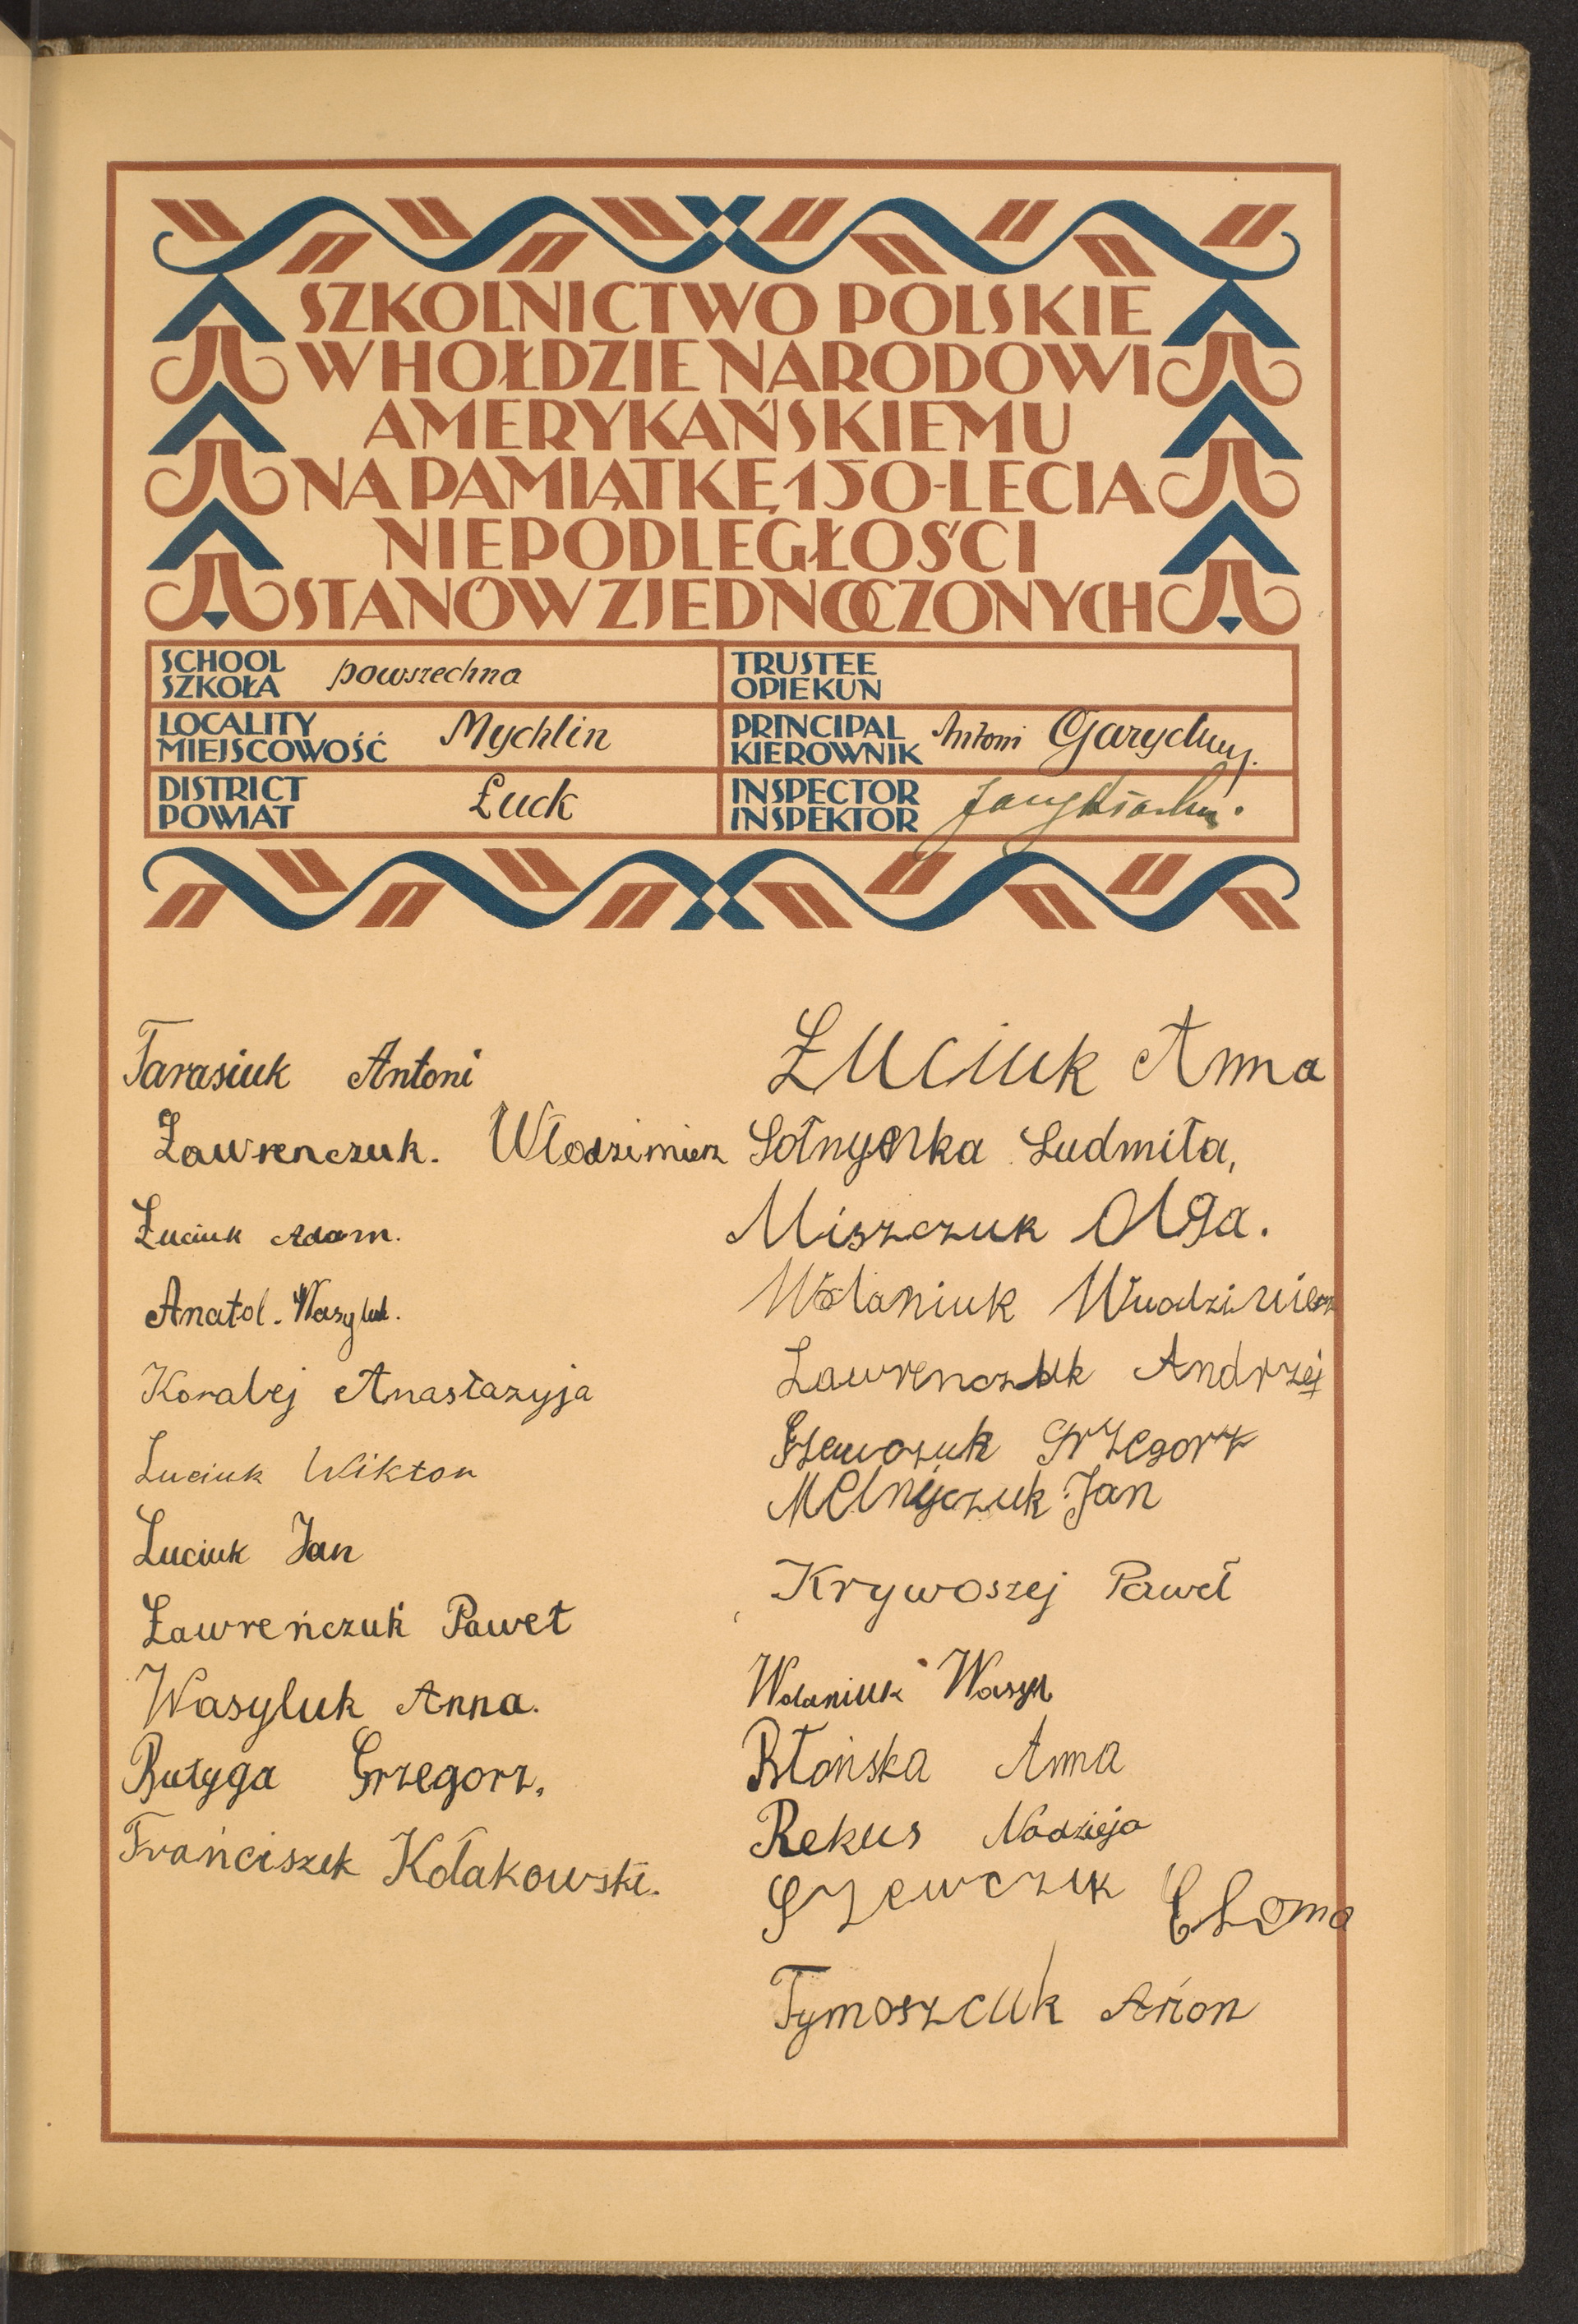 SZKOLNICTWO POLSKIE
W HOŁDZIE NARODOWI
AMERYKAŃSKIEMU
NA PAMIĄTKĘ 150-LECIA
NIEPODLEGŁOŚCI
STANÓW ZJEDNOCZONYCH
SCHOOL
SZKOŁA
powszechna
TRUSTEE
OPIEKUN
LOCALITY
MIEJSCOWOŚĆ
Mychlin
PRINCIPAL
KIEROWNIK
Antoni
DISTRICT
POWIAT
Łuck
INSPECTOR
INSPEKTOR
Tarasiuk Antoni
Ławrenczuk. Włodzimierz
Łuciuk Adam.
Anatol. Wasyluk.
Koralej Anastazyja
Luciuk Wiktor
Luciuk Jan
Ławreńczuk Paweł
Wasyluk Anna.
Butyga Grzegorz.
Franciszek Kołakowski.
Łuciuk Anna
Sołnyerka Ludmiła,
Miszczuk Olga.
Andrzej
Grzegorz
Melnyczuk Jan
Krywoszej Paweł
Wolaniuk Wasyl
Błońska Anna
Rekus Nadzieja
Szewczuk Choma
Tymoszcuk